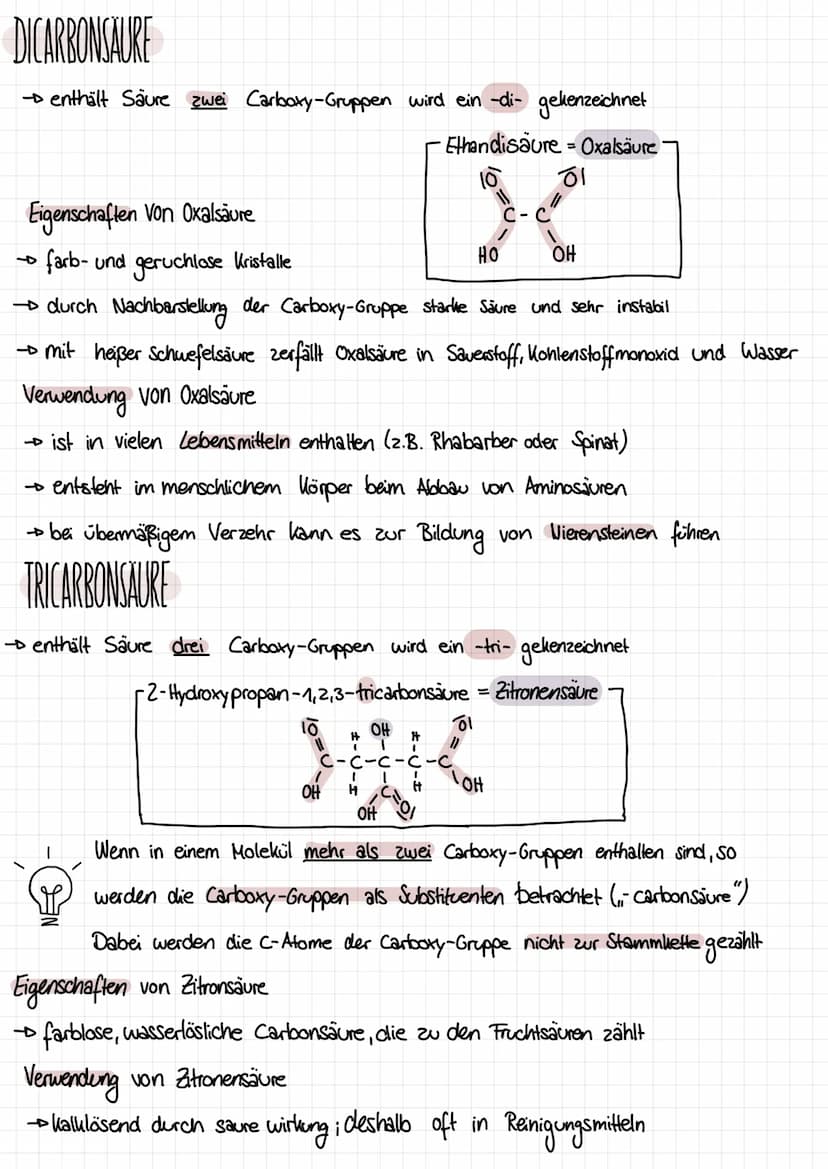 DICARBONSÄURE
→ enthält Säure zwei Carboxy-Gruppen wird ein -di- gekenzeichnet
Ethandisäure = Oxalsäure
|O O|
C - C
HO OH
Eigenschaften von Oxalsäure
→ farb- und geruchlose Kristalle
→ durch Nachbarstellung der Carboxy-Gruppe starke Säure und sehr instabil
→ mit heißer Schwefelsäure zerfällt Oxalsäure in Sauerstoff, Kohlenstoffmonoxid und Wasser
Verwendung von Oxalsäure
→ ist in vielen Lebensmitteln enthalten (z.B. Rhabarber oder Spinat)
→ entsteht im menschlichem Körper beim Abbau von Aminosäuren
→ bei übermäßigem Verzehr kann es zur Bildung von Nierensteinen führen
TRICARBONSÄURE
→ enthält Säure drei Carboxy-Gruppen wird ein -tri- gekenzeichnet
2-Hydroxypropan-1,2,3-tricarbonsäure = Zitronensäure
|O H OH H O|
C-C-C-C-C
OH H C H OH
OH O
Wenn in einem Molekül mehr als zwei Carboxy-Gruppen enthalten sind, so
werden die Carboxy-Gruppen als Substituenten betrachtet („-carbonsäure“)
Dabei werden die C-Atome der Carboxy-Gruppe nicht zur Stammkette gezählt
Eigenschaften von Zitronsäure
→ farblose, wasserlösliche Carbonsäure, die zu den Fruchtsäuren zählt
Verwendung von Zitronensäure
→ kalklösend durch saure wirkung; deshalb oft in Reinigungsmitteln